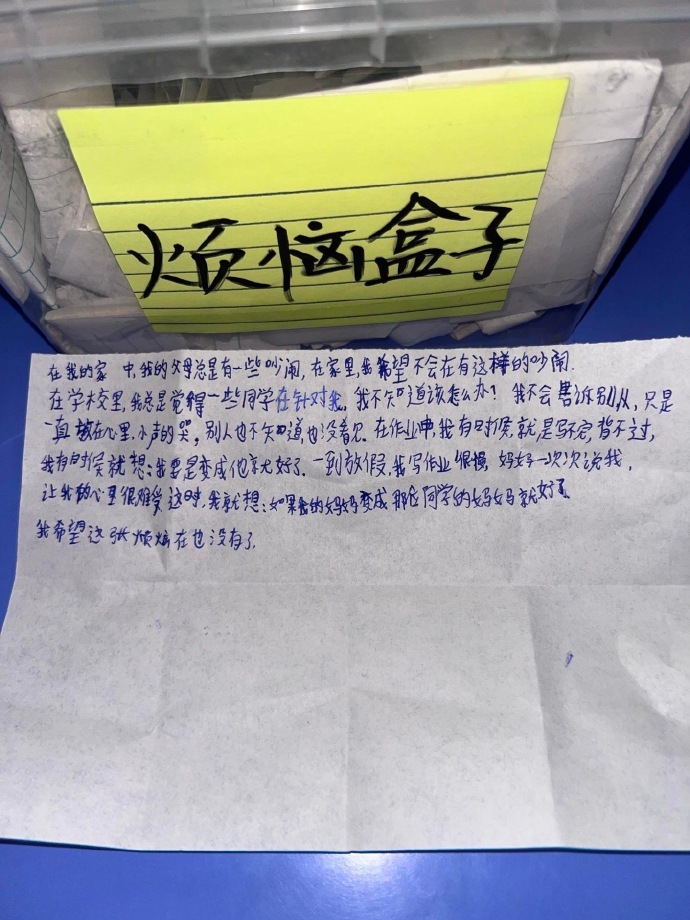 烦恼盒子
在我的家 中,我的父母总是有一些吵闹,在家里,我希望不会在有这样的吵闹.
在学校里,我总是觉得一些同学在针对我,我不知道该怎么办?我不会告诉别人,只是
一直 在心里,小声的哭,别人也不知道,也没看见.在作业中,我有时候就是写不完,背不过,
我有时候就想:我要是变成他 大好了.一到放假,我写作业很慢,妈妈一次次说我,
让我的心里很难受,这时,我就想:如果我的妈妈变成那位同学的妈妈就好了.
我希望这张烦恼在也没有了.